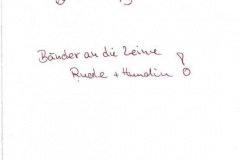 Bänder an die Leine
Rüde + Hündin !